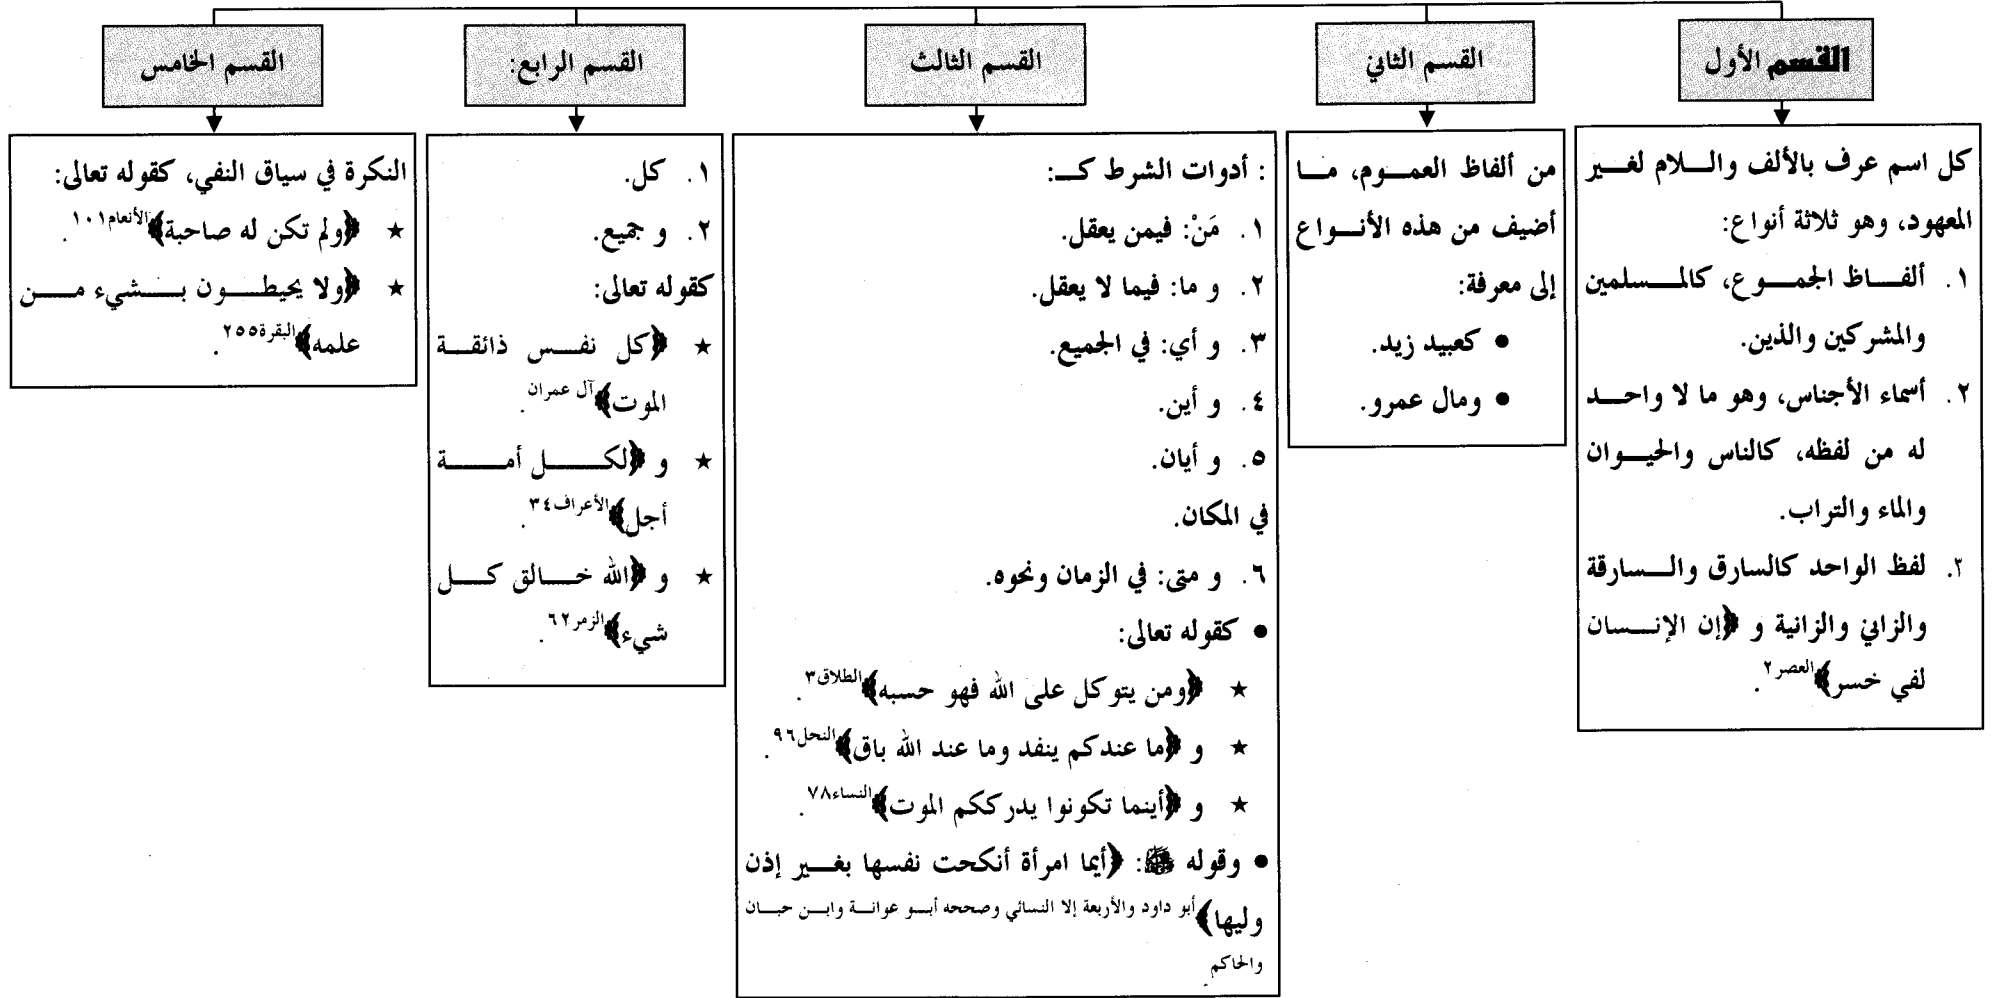 القسم الأول
كل اسم عرف بالألف واللام لغير
المعهود، وهو ثلاثة أنواع:
١. ألفاظ الجموع، كالمسلمين
والمشركين والذين.
٢. أسماء الأجناس، وهو ما لا واحد
له من لفظه، كالناس والحيوان
والماء والتراب.
٣. لفظ الواحد كالسارق والسارقة
والزاني والزانية و ﴿إن الإنسان
لفي خسر﴾العصر٢.
القسم الثاني
من ألفاظ العموم، ما
أضيف من هذه الأنواع
إلى معرفة:
● كعبيد زيد.
● ومال عمرو.
القسم الثالث
: أدوات الشرط كـ:
١. مَنْ: فيمن يعقل.
٢. و ما: فيما لا يعقل.
٣. و أي: في الجميع.
٤. و أين.
٥. و أيان.
في المكان.
٦. و متى: في الزمان ونحوه.
● كقوله تعالى:
★ ﴿ومن يتوكل على الله فهو حسبه﴾الطلاق٣.
★ و ﴿ما عندكم ينفد وما عند الله باق﴾النحل٩٦.
★ و ﴿أينما تكونوا يدرككم الموت﴾النساء٧٨.
● وقوله ﷺ: ﴿أيما امرأة أنكحت نفسها بغير إذن
وليها﴾أبو داود والأربعة إلا النسائي وصححه أبو عوانة وابن حبان
والحاكم.
القسم الرابع:
١. كل.
٢. و جميع.
كقوله تعالى:
★ ﴿كل نفس ذائقة
الموت﴾آل عمران.
★ و ﴿لكل أمة
أجل﴾الأعراف٣٤.
★ و ﴿الله خالق كل
شيء﴾الزمر٦٢.
القسم الخامس
النكرة في سياق النفي، كقوله تعالى:
★ ﴿ولم تكن له صاحبة﴾الأنعام١٠١.
★ ﴿ولا يحيطون بشيء من
علمه﴾البقرة٢٥٥.